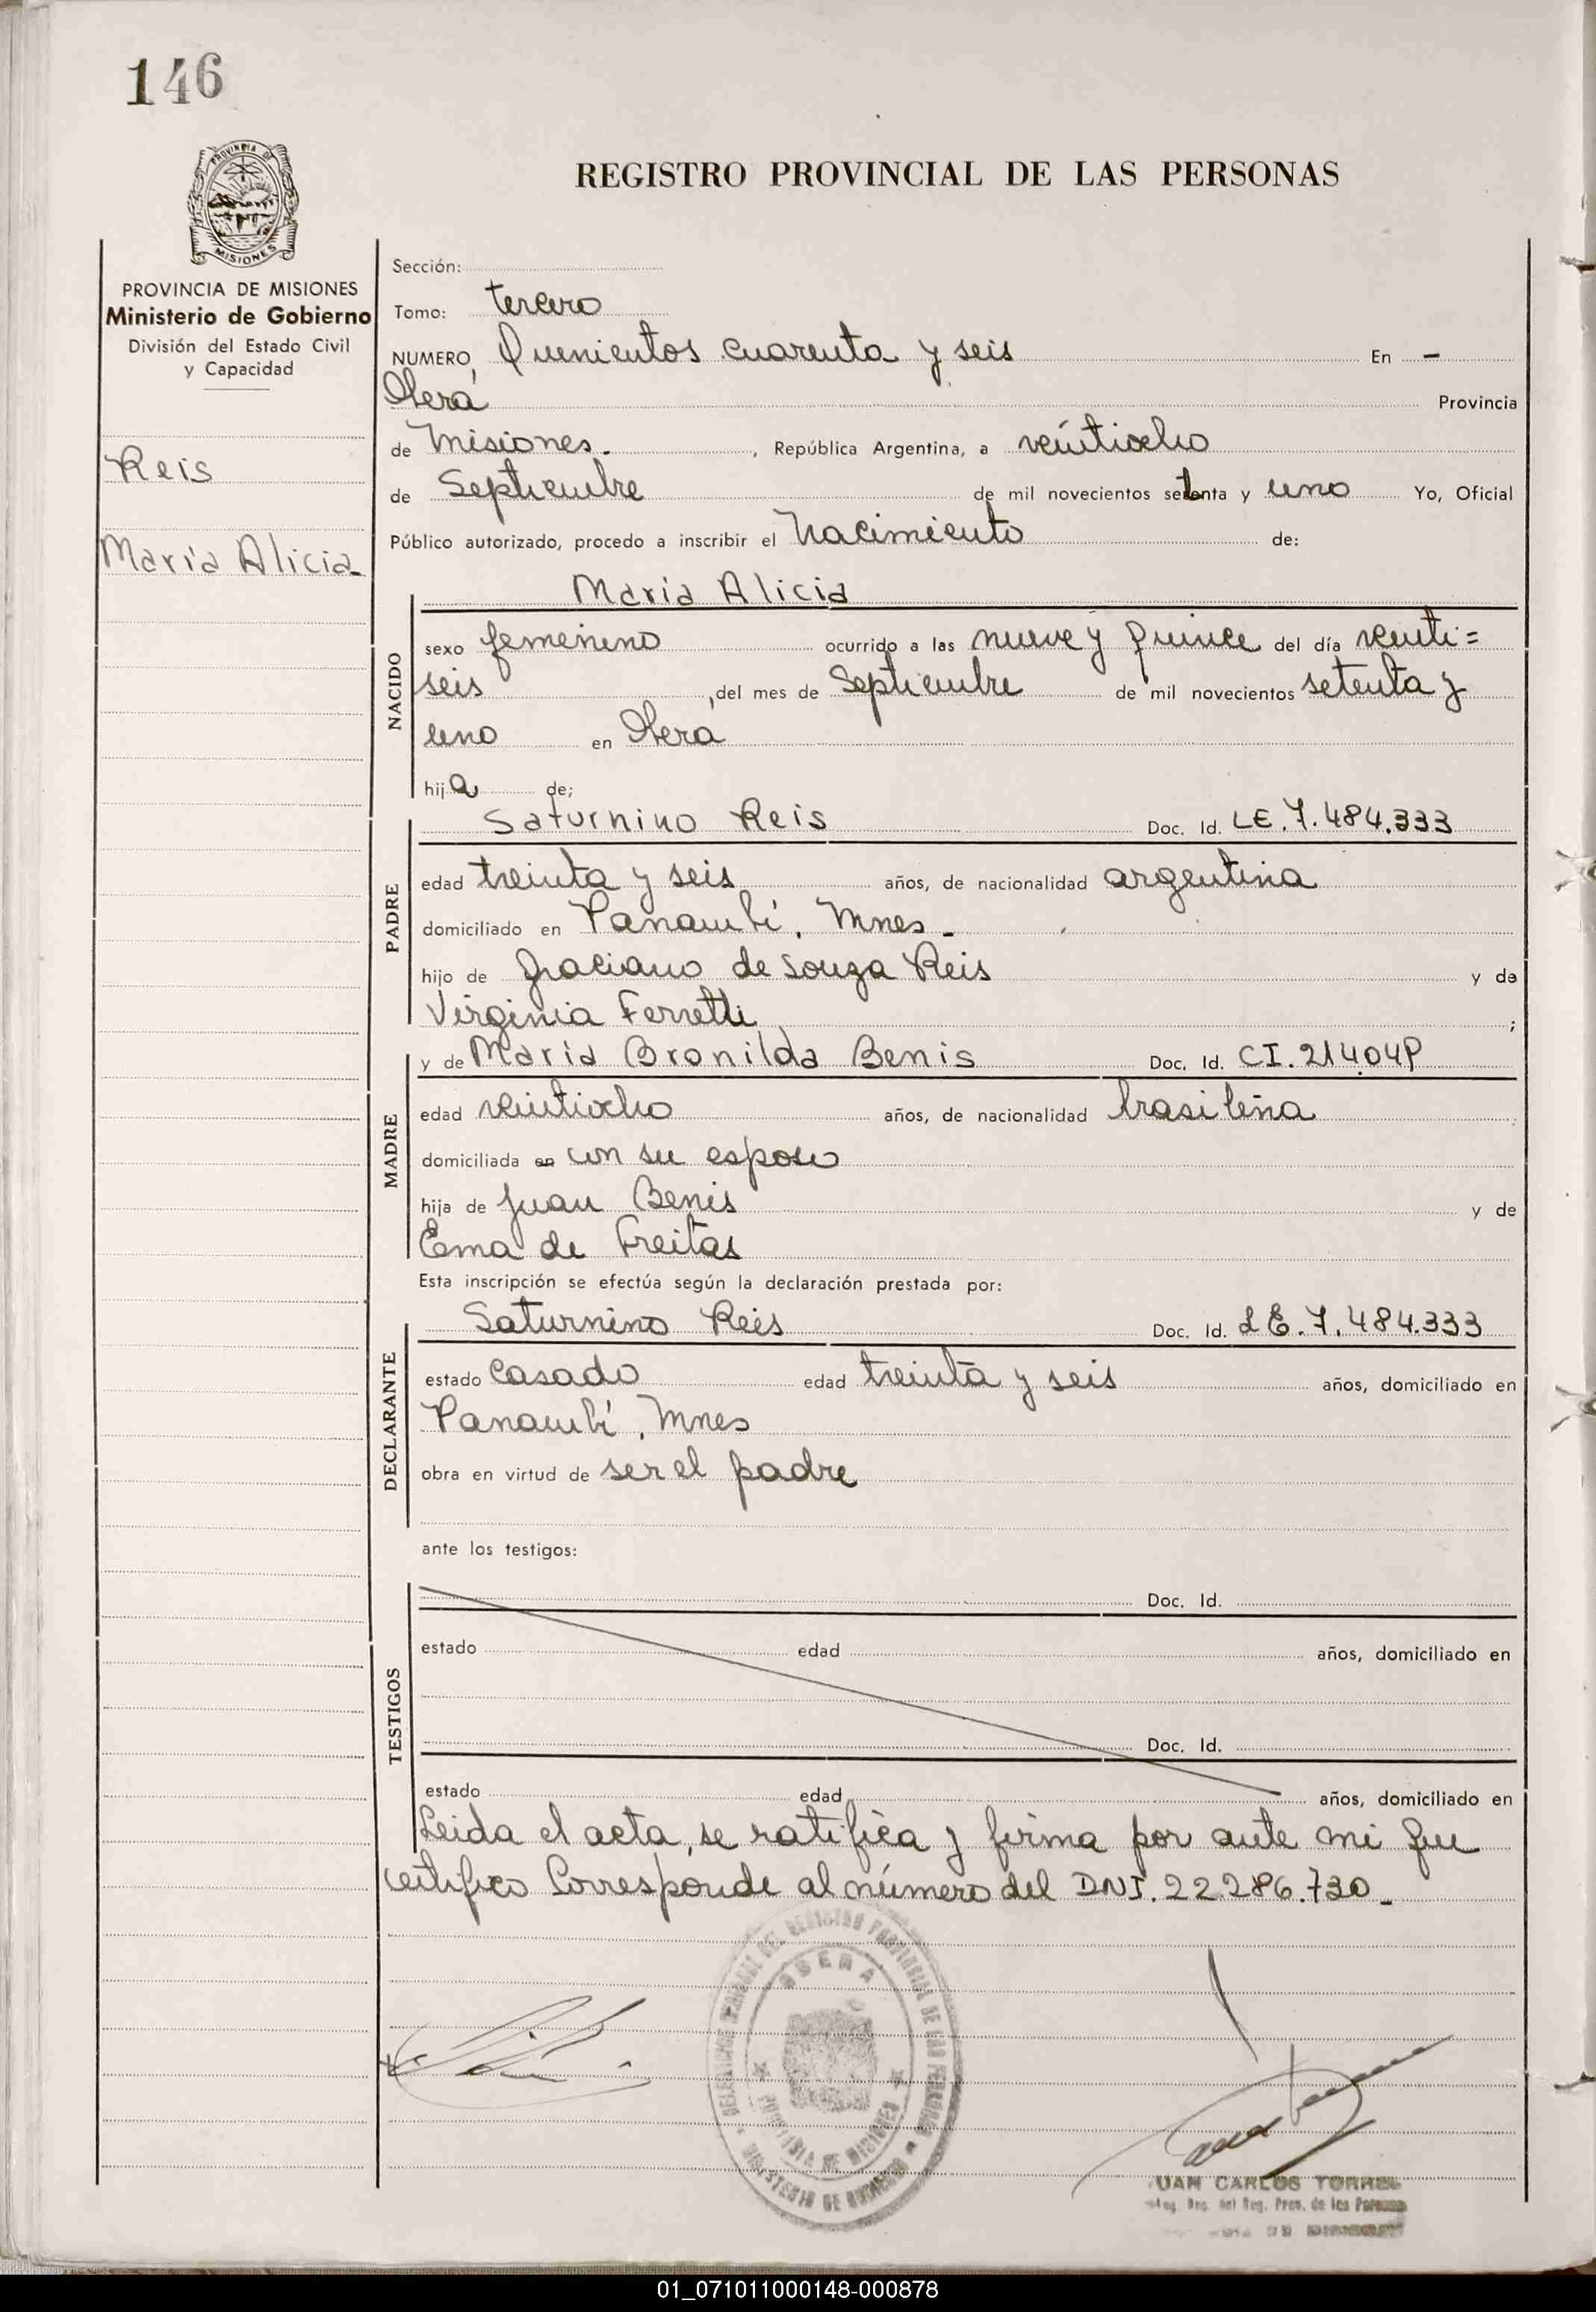 146
PROVINCIA DE
MISIONES
REGISTRO PROVINCIAL DE LAS PERSONAS
PROVINCIA DE MISIONES
Ministerio de Gobierno
División del Estado Civil
y Capacidad
Reis
María Alicia
Sección:
Tomo: tercero
NUMERO, Quinientos cuarenta y seis En -
Oberá Provincia
de Misiones. , República Argentina, a veintiocho
de Septiembre de mil novecientos setenta y uno Yo, Oficial
Público autorizado, procedo a inscribir el Nacimiento de:
María Alicia
NACIDO
sexo femenino ocurrido a las nueve y quince del día veinti=
seis , del mes de Septiembre de mil novecientos setenta y
uno en Oberá
hija de;
PADRE
Saturnino Reis Doc. Id. LE. 7.484.333
edad treinta y seis años, de nacionalidad argentina
domiciliado en Panambí, Mnes.
hijo de Graciano de Souza Reis y de
Virginia Ferretti ;
MADRE
y de María Bronilda Benis Doc. Id. CI. 214.049
edad veintiocho años, de nacionalidad brasileña
domiciliada en con su esposo
hija de Juan Benis y de
Ema de Freitas
Esta inscripción se efectúa según la declaración prestada por:
DECLARANTE
Saturnino Reis Doc. Id. LE. 7.484.333
estado casado edad treinta y seis años, domiciliado en
Panambí, Mnes
obra en virtud de ser el padre
ante los testigos:
TESTIGOS
Doc. Id.
estado edad años, domiciliado en
Doc. Id.
estado edad años, domiciliado en
Leida el acta, se ratifica y firma por ante mi que
certifico Corresponde al número del DNI. 22.286.730.
OBERA
PROVINCIA DE MISIONES
JUAN CARLOS TORRES
del Reg. Prov. de las Personas
01_071011000148-000878